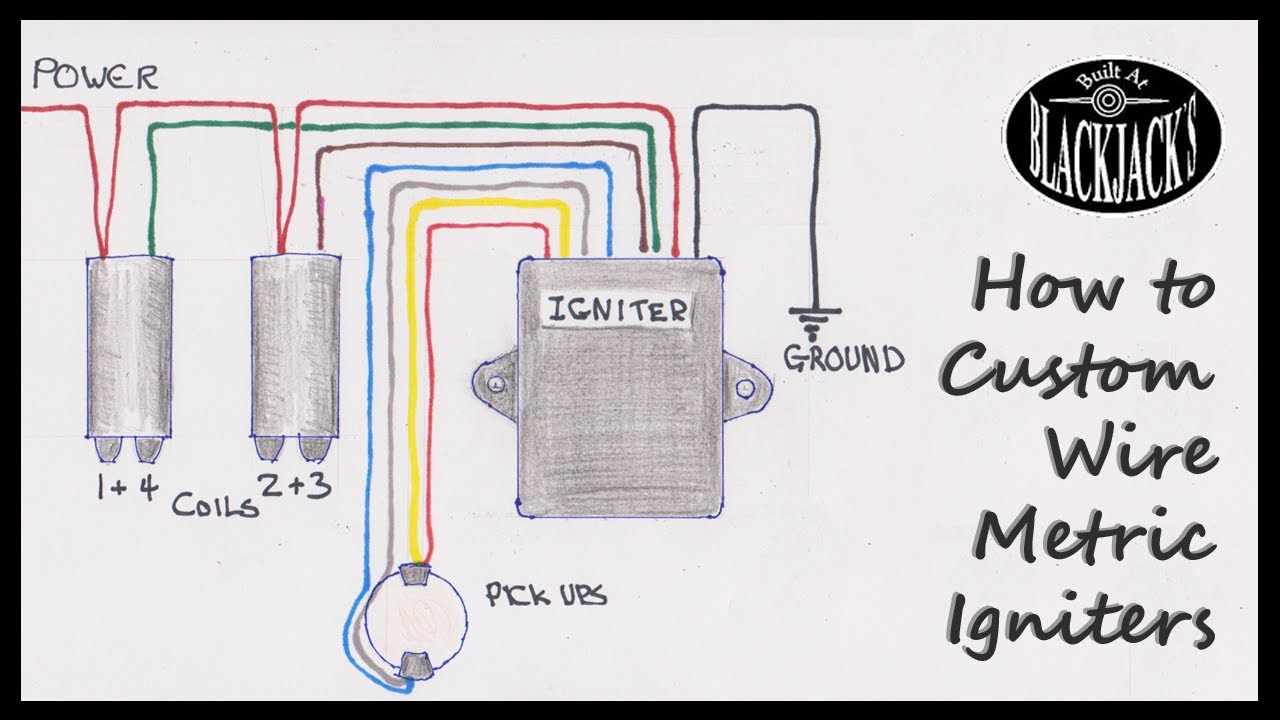 POWER
Built At
BLACKJACK'S
IGNITER
GROUND
1+4
COILS
2+3
PICK UPS
How to
Custom
Wire
Metric
Igniters